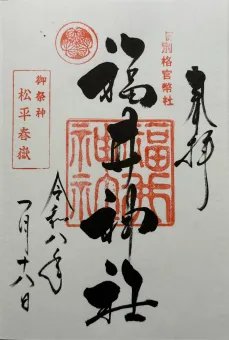 奉拝
別格官幣社
福井神社
福井神社
御祭神
松平春嶽
令和八年
一月十八日